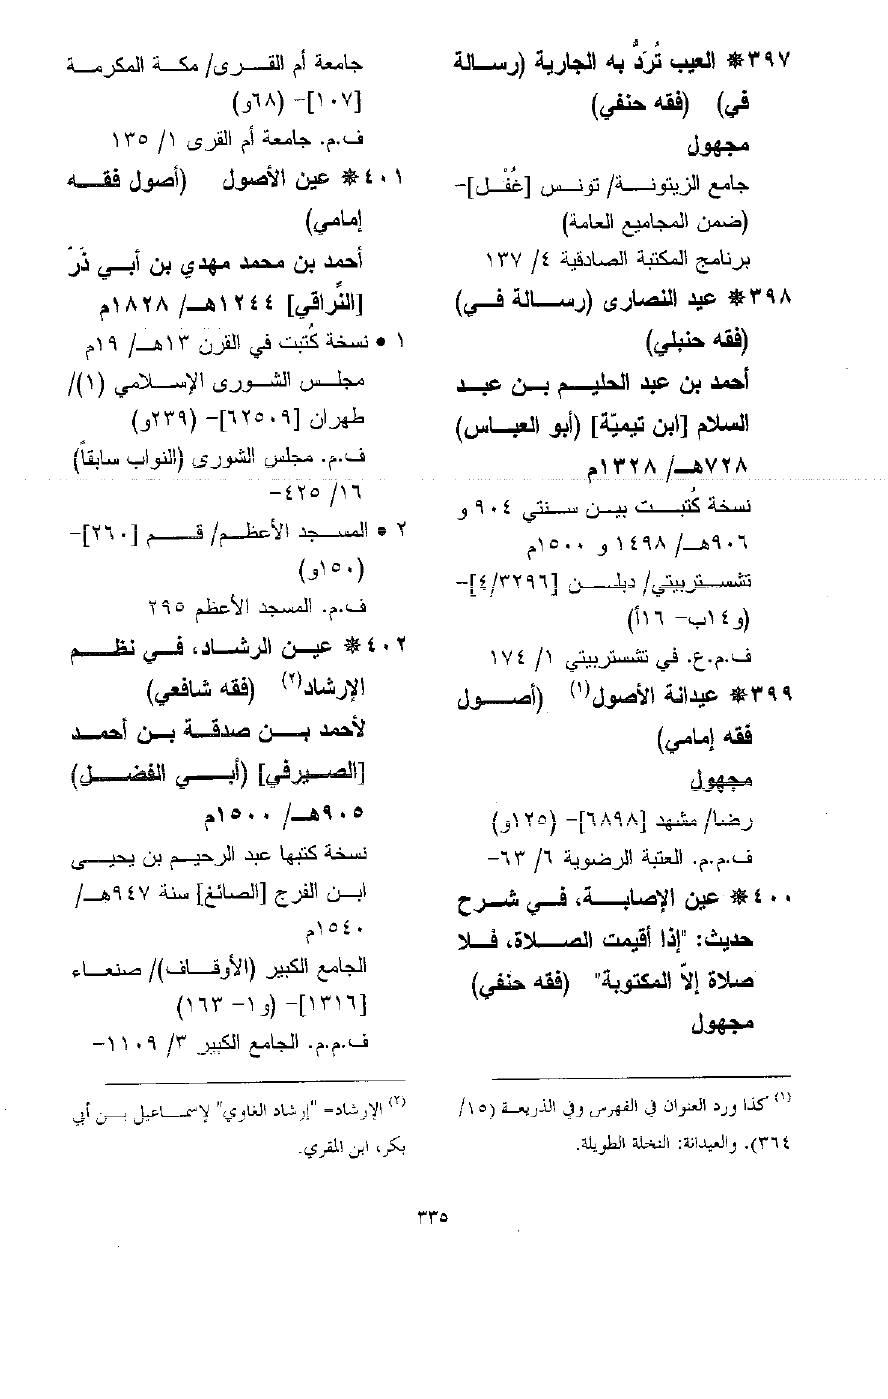 ٣٩٧* العيب تُرَدُّ به الجارية (رسالة
في) (فقه حنفي)
مجهول
جامع الزيتونة/ تونس [غُفْل]-
(ضمن المجاميع العامة)
برنامج المكتبة الصادقية ٤/ ١٣٧
٣٩٨* عيد النصارى (رسالة في)
(فقه حنبلي)
أحمد بن عبد الحليم بن عبد
السلام [ابن تيميّة] (أبو العباس)
٧٢٨هـ/ ١٣٢٨م
نسخة كُتبت بين سنتي ٩٠٤ و
٩٠٦هـ/ ١٤٩٨ و ١٥٠٠م
تشستربيتي/ دبلن [٤/٣٢٩٦]-
(و١٤ب- ١٦أ)
ف.م.ع. في تشستربيتي ١/ ١٧٤
٣٩٩* عيدانة الأصول(١) (أصول
فقه إمامي)
مجهول
رضا/ مشهد [٦٨٩٨]- (١٢٥و)
ف.م.م. العتبة الرضوية ٦/ ٦٣-
٤٠٠* عين الإصابة، في شرح
حديث: "إذا أقيمت الصلاة، فلا
صلاة إلاّ المكتوبة" (فقه حنفي)
مجهول
(١) كذا ورد العنوان في الفهرس وفي الذريعة (١٥/
٣٦٤). والعيدانة: النخلة الطويلة.
جامعة أم القرى/ مكة المكرمة
[١٠٧]- (٦٨و)
ف.م. جامعة أم القرى ١/ ١٣٥
٤٠١* عين الأصول (أصول فقه
إمامي)
أحمد بن محمد مهدي بن أبي ذَرّ
[النَّراقي] ١٢٤٤هـ/ ١٨٢٨م
١ • نسخة كُتبت في القرن ١٣هـ/ ١٩م
مجلس الشورى الإسلامي (١)/
طهران [٦٢٥٠٩]- (٢٣٩و)
ف.م. مجلس الشورى (النواب سابقاً)
١٦/ ٤٢٥-
٢ • المسجد الأعظم/ قم [٢٦٠]-
(١٥٠و)
ف.م. المسجد الأعظم ٢٩٥
٤٠٢* عين الرشاد، في نظم
الإرشاد(٢) (فقه شافعي)
لأحمد بن صدقة بن أحمد
[الصيرفي] (أبي الفضل)
٩٠٥هـ/ ١٥٠٠م
نسخة كتبها عبد الرحيم بن يحيى
ابن الفرج [الصائغ] سنة ٩٤٧هـ/
١٥٤٠م
الجامع الكبير (الأوقاف)/ صنعاء
[١٣١٦]- (و١- ١٦٣)
ف.م.م. الجامع الكبير ٣/ ١١٠٩-
(٢) الإرشاد= "إرشاد الغاوي" لإسماعيل بن أبي
بكر، ابن المقري.
٣٣٥